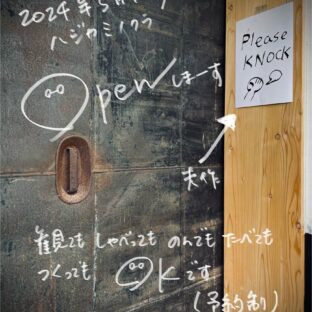 2024年5月
ハジカミノクラ
Openしまーす
Please
KNOCK
大作
観ても しゃべっても のんでも たべても
つくっても OKです
(予約制)